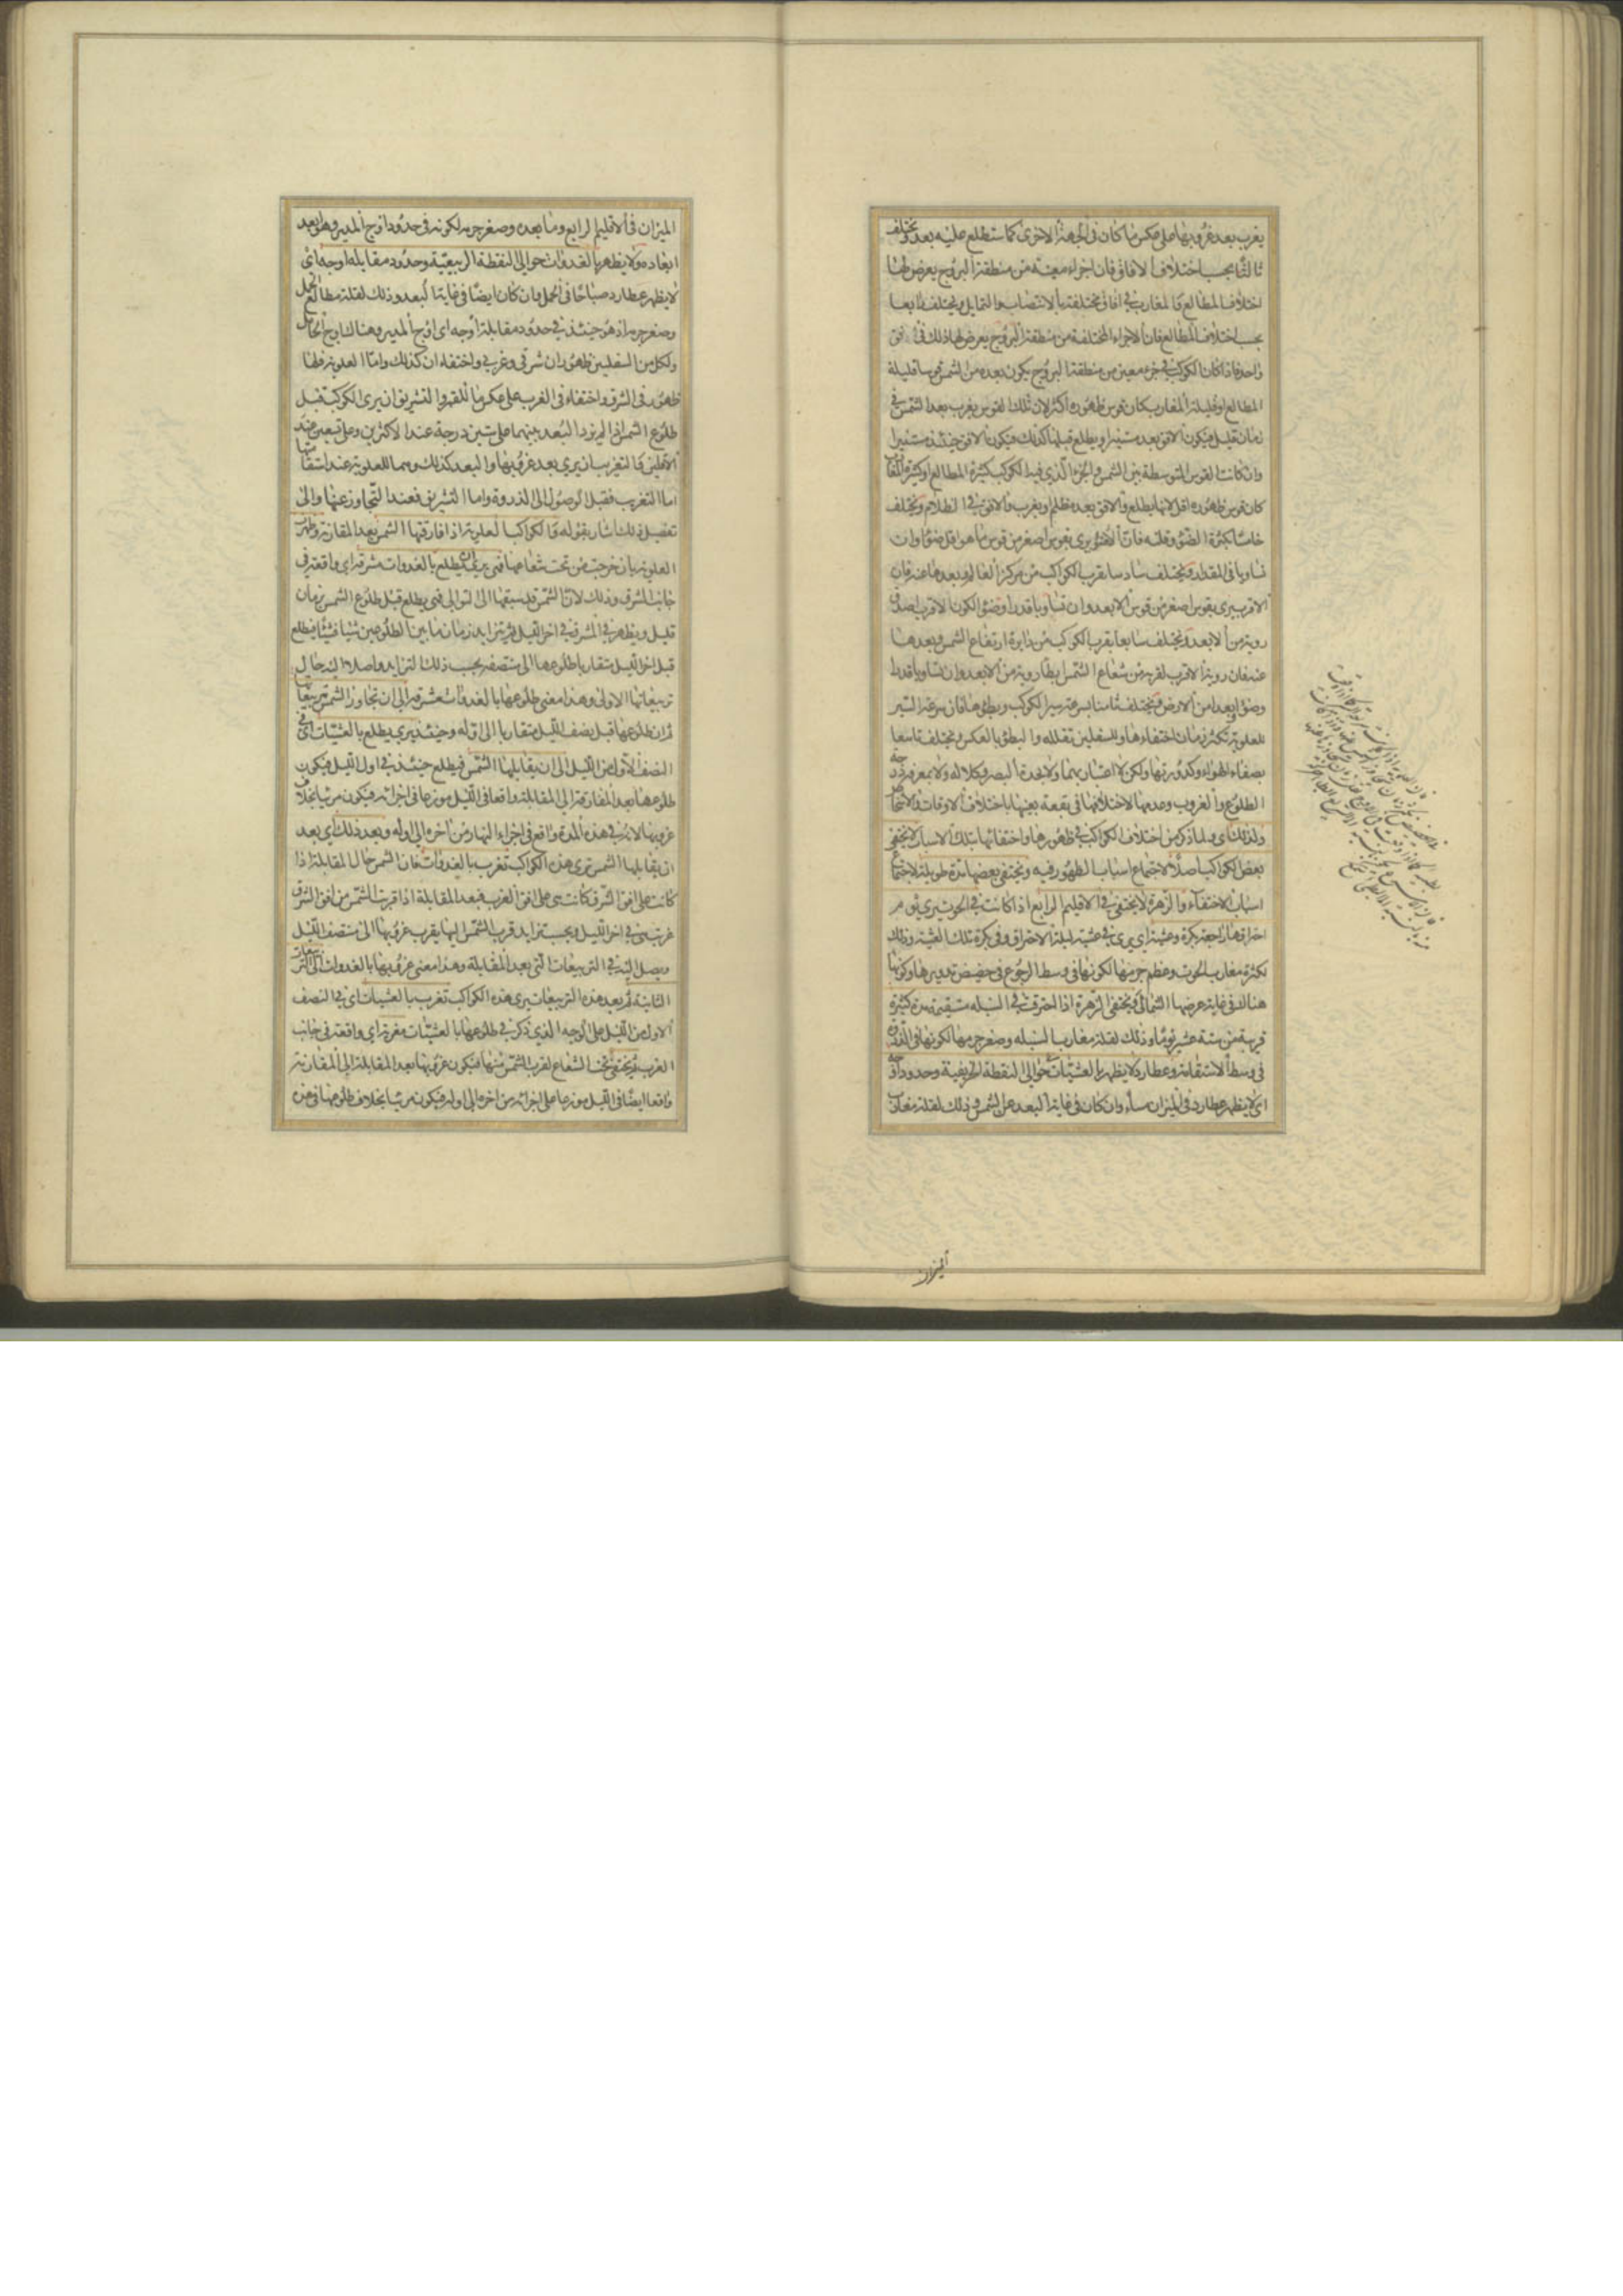 يغرب بعد غروبها على عكس ما كان فى الجهة الاخرى كما ستطلع عليه بعد ويختلف
ثالثا بحسب اختلاف الافاق فان اجزاء معينة من منطقة البروج يعرض لها
اختلاف المطالع والمغارب فى افاق مختلفة بالانتصاب والتمايل ويختلف رابعا
بحسب اختلاف المطالع فان الاجزاء المختلفة من منطقة البروج يعرض لها ذلك فى افق
واحد فاذا كان الكوكب فى جزء معين من منطقة البروج يكون بعده من الشمس قوسا قليلة
المطالع او قليلة المغارب كان قوس ظهوره اكثر لان تلك القوس يغرب بعد الشمس فى
زمان قليل فيكون الافق بعد مستنيرا ويطلع قبلها كذلك فيكون الافق حينئذ مستنيرا
وان كانت القوس المتوسطة بين الشمس والجزء الذي فيه الكوكب كثيرة المطالع او كثيرة المغارب
كان قوس ظهوره اقل لانها يطلع والافق بعده مظلم ويغرب والافق فى الظلام ويختلف
خامسا بكثرة الضوء وقلته فان الاضوء يرى بقوس اصغر من قوس ما هو اقل ضوءا وان
تساويا فى المقدار ويختلف سادسا بقرب الكواكب من مركز العالم وبعدها عنه فان
الاقرب يرى بقوس اصغر من قوس الابعد وان تساويا قدرا وضوءا لكون الاقرب اصدق
روية من الابعد ويختلف سابعا بقرب الكوكب من دايرة ارتفاع الشمس وبعدها
عنه فان روية الاقرب لقربه من شعاع الشمس ابطأ روية من الابعد وان تساويا قدرا
وضوءا وبعدا من الارض ويختلف ثامنا بسرعة سير الكوكب وبطؤها فان سرعة السير
للعلوية تكثر زمان اختفاءها وللسفلين تقلله والبطؤ بالعكس ويختلف تاسعا
بصفاء الهواء وكدورتها ولكن لا اعتبار بهما ولا بحدة البصر وكلاله ولا بمعرفة درجة
الطلوع والغروب وعدمها لاختلافها فى بقعة بعينها باختلاف الاوقات والاشخاص
ولذلك اى ولما ذكر من اختلاف الكواكب فى ظهورها واختفائها بتلك الاسباب لا يختفى
بعض الكواكب اصلا لاجتماع اسباب الظهور فيه ويختفى بعضها مدة طويلة لاجتماع
اسباب الاختفاء والزهرة لا يختفى فى الاقليم الرابع اذا كانت فى الحوت يرى يوم
احتراقها راجعة بكرة وعشية اى يرى فى عشية ليلة الاحتراق وفى بكرة تلك العشية وذلك
لكثرة مغارب الحوت وعظم جرمها لكونها فى وسط الرجوع فى حضيض تدويرها وكونها
هنالك فى غاية عرضها الشمالى ويختفى الزهرة اذا احترقت فى السنبلة مستقيمة مدة كثيرة
قريبة من ستة عشر يوما وذلك لقلة مغارب السنبلة وصغر جرمها لكونها فى الذروة
فى وسط الاستقامة وعطارد لا يظهر بالعشيات حوالى النقطة الخريفية وحدود اوجه
اى لا يظهر عطارد فى الميزان مساء وان كان فى غاية البعد عن الشمس وذلك لقلة مغارب
الميزان
الميزان فى الاقليم الرابع وما بعده وصغر جرمه لكونه فى حدود اوج المدير وهو ابعد
ابعاده ولا يظهر بالغدوات حوالى النقطة الربيعية وحدود مقابلة اوجه اى
لا يظهر عطارد صباحا فى الحمل وان كان ايضا فى غاية البعد وذلك لقلة مطالع الحمل
وصغر جرمه اذ هو حينئذ فى حدود مقابلة اوجه اى اوج المدير وهناك اوج الحامل
ولكل من السفليين ظهوران شرقى وغربى واختفاءان كذلك واما العلوية فلها
ظهور فى الشرق واختفاء فى الغرب على عكس ما للقمر والتشريق ان يرى الكوكب قبل
طلوع الشمس اذا لم يزد البعد بينهما على ستين درجة عند الاكثرين وعلى تسعين عند
الاقلين والتغريب ان يرى بعد غروبها والبعد كذلك وهما للعلوية عند استقامتها
اما التغريب فقبل الوصول الى الذروة واما التشريق فعند التجاوز عنها والى
تفصيل ذلك اشار بقوله والكواكب العلوية اذا فارقتها الشمس بعد المقارنة وظهرت
العلوية بان خرجت من تحت شعاعها فهى يرى ان يطلع بالغدوات مشرقة اى واقعة فى
جانب المشرق وذلك لان الشمس قد سبقتها الى التوالى فهى يطلع قبل طلوع الشمس بزمان
قليل ويظهر فى المشرق فى اخر الليل ثم يتزايد زمان ما بين الطلوعين شيئا فشيئا فيطلع
قبل اخر الليل متقاربا طلوعها الى منتصفه بحسب ذلك التزايد واصلا اليه حال
تربيعاتها الاولى وهذا معنى طلوعها بالغدوات مشرقة الى ان تجاوز الشمس تربيعاتها
ثم ان طلوعها قبل نصف الليل متقاربا الى اوله وحينئذ يرى يطلع بالعشيات اى فى
النصف الاول من الليل الى ان يقابلها الشمس فيطلع حينئذ فى اول الليل فيكون
طلوعها بعد المفارقة الى المقابلة واقعا فى الليل موزعا فى اجزائه فيكون مرئيا بخلاف
غروبها لانه فى هذه المدة واقع فى اجزاء النهار من اخره الى اوله وبعد ذلك اى بعد
ان يقابلها الشمس يرى هذه الكواكب تغرب بالغدوات فان الشمس حال المقابلة اذا
كانت على افق الشرق كانت هى على افق الغرب فبعد المقابلة اذا قربت الشمس من افق الشرق
غربت هى فى اخر الليل وبحسب تزايد قرب الشمس اليها يقرب غروبها الى منتصف الليل
ويصل اليه فى التربيعات التى بعد المقابلة وهذا معنى غروبها بالغدوات الى التربيعات
الثانية ثم بعد هذه التربيعات يرى هذه الكواكب تغرب بالعشيات اى فى النصف
الاول من الليل على الوجه الذى ذكر فى طلوعها بالعشيات مغربة اى واقعة فى جانب
الغرب ثم يختفى تحت الشعاع لقرب الشمس منها فيكون غروبها بعد المقابلة الى المقارنة
واقعا ايضا فى الليل موزعا على اجزائه من اخره الى اوله فيكون مرئيا بخلاف طلوعها فى هذه